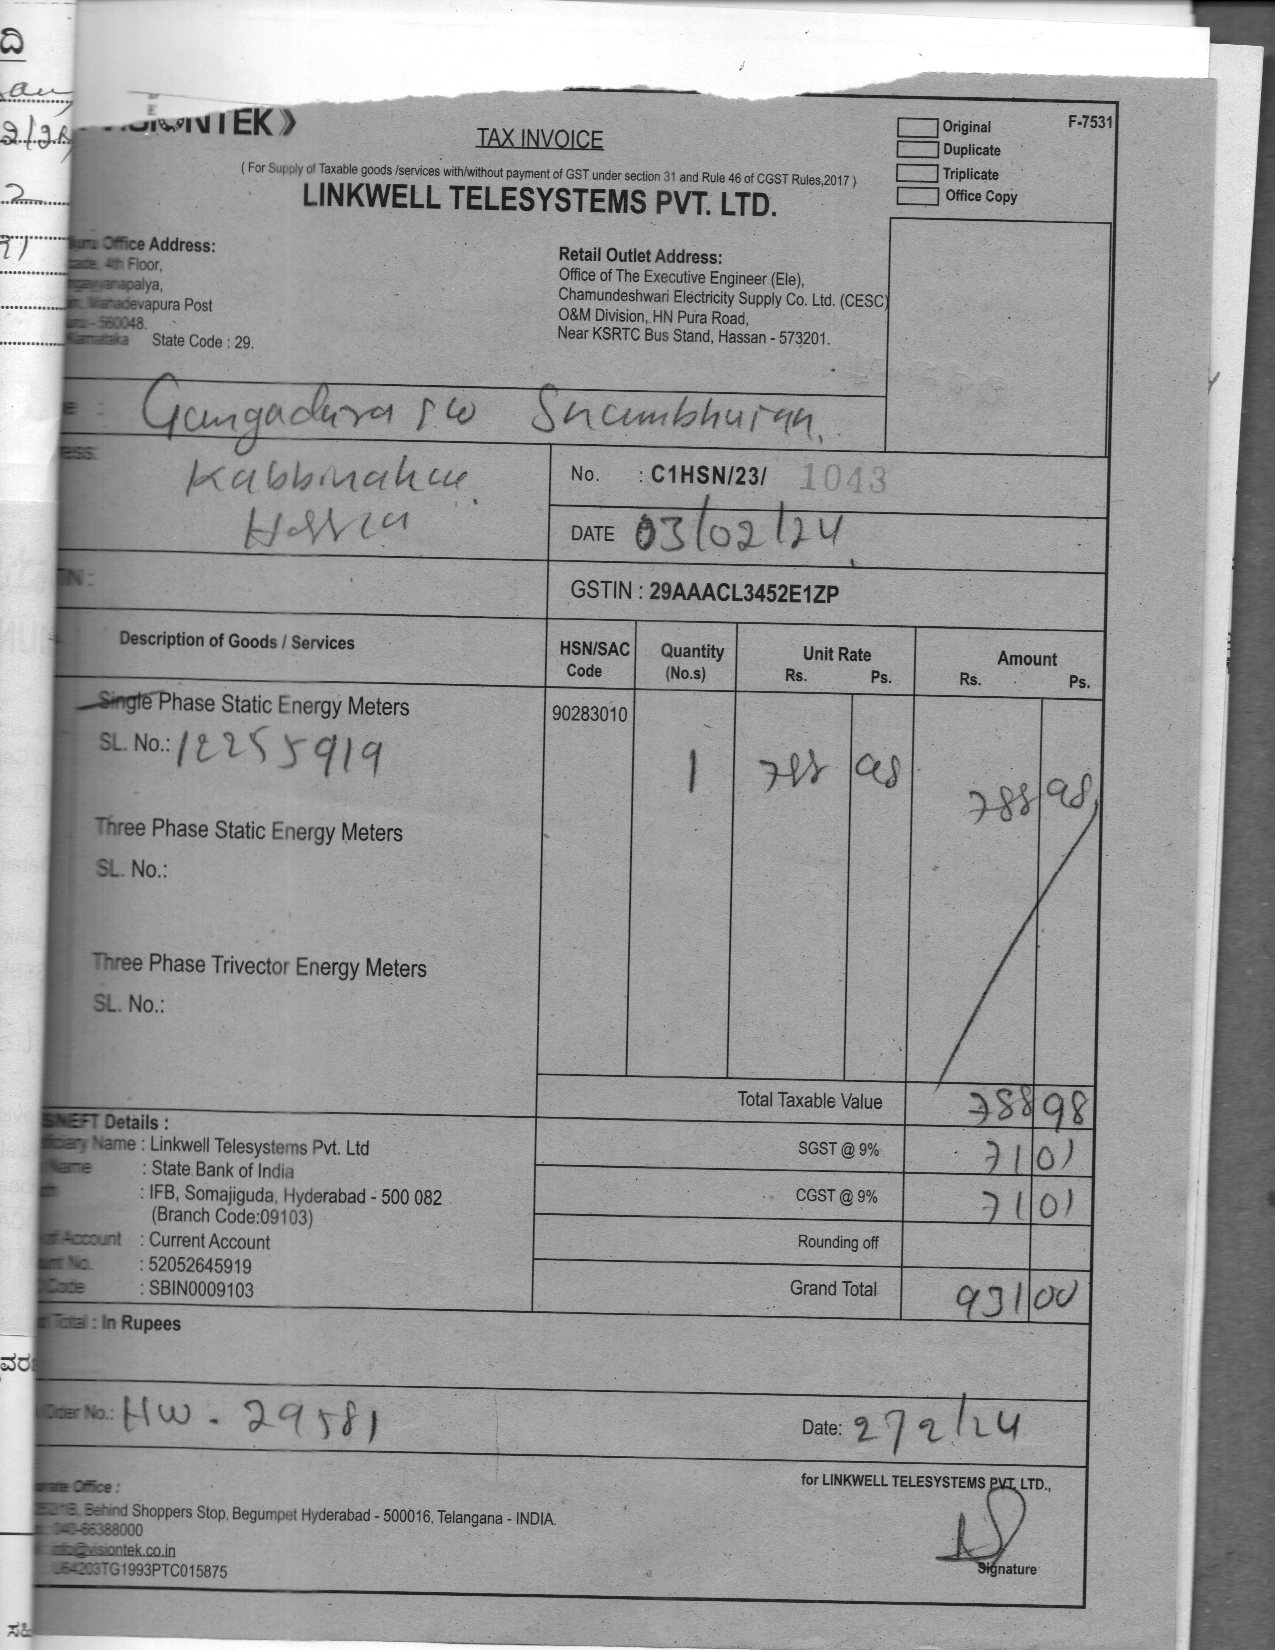 TEK》
TAX INVOICE
( For Supply of Taxable goods /services with/without payment of GST under section 31 and Rule 46 of CGST Rules,2017 )
LINKWELL TELESYSTEMS PVT. LTD.
F-7531
Original
Duplicate
Triplicate
Office Copy
Office Address:
4th Floor,
Mahadevapura Post
- 560048.
Karnataka State Code : 29.
Retail Outlet Address:
Office of The Executive Engineer (Ele),
Chamundeshwari Electricity Supply Co. Ltd. (CESC)
O&M Division, HN Pura Road,
Near KSRTC Bus Stand, Hassan - 573201.
Gangadhra s/o
No. : C1HSN/23/ 1043
DATE 03/02/24
GSTIN : 29AAACL3452E1ZP
Description of Goods / Services HSN/SAC Code Quantity (No.s) Unit Rate Rs. Ps. Amount Rs. Ps.
Single Phase Static Energy Meters 90283010
SL. No.: 12255919 1 788 98 788 98
Three Phase Static Energy Meters
SL. No.:
Three Phase Trivector Energy Meters
SL. No.:
Total Taxable Value 788 98
SGST @ 9% 71 01
CGST @ 9% 71 01
Rounding off
Grand Total 931 00
NEFT Details :
Name : Linkwell Telesystems Pvt. Ltd
Name : State Bank of India
: IFB, Somajiguda, Hyderabad - 500 082
(Branch Code:09103)
of Account : Current Account
No. : 52052645919
Code : SBIN0009103
Total : In Rupees
No.: HW - 29581
Date: 2/2/24
for LINKWELL TELESYSTEMS PVT. LTD.,
Office :
Behind Shoppers Stop, Begumpet Hyderabad - 500016, Telangana - INDIA.
040-66388000
info@visiontek.co.in
U64203TG1993PTC015875
Signature